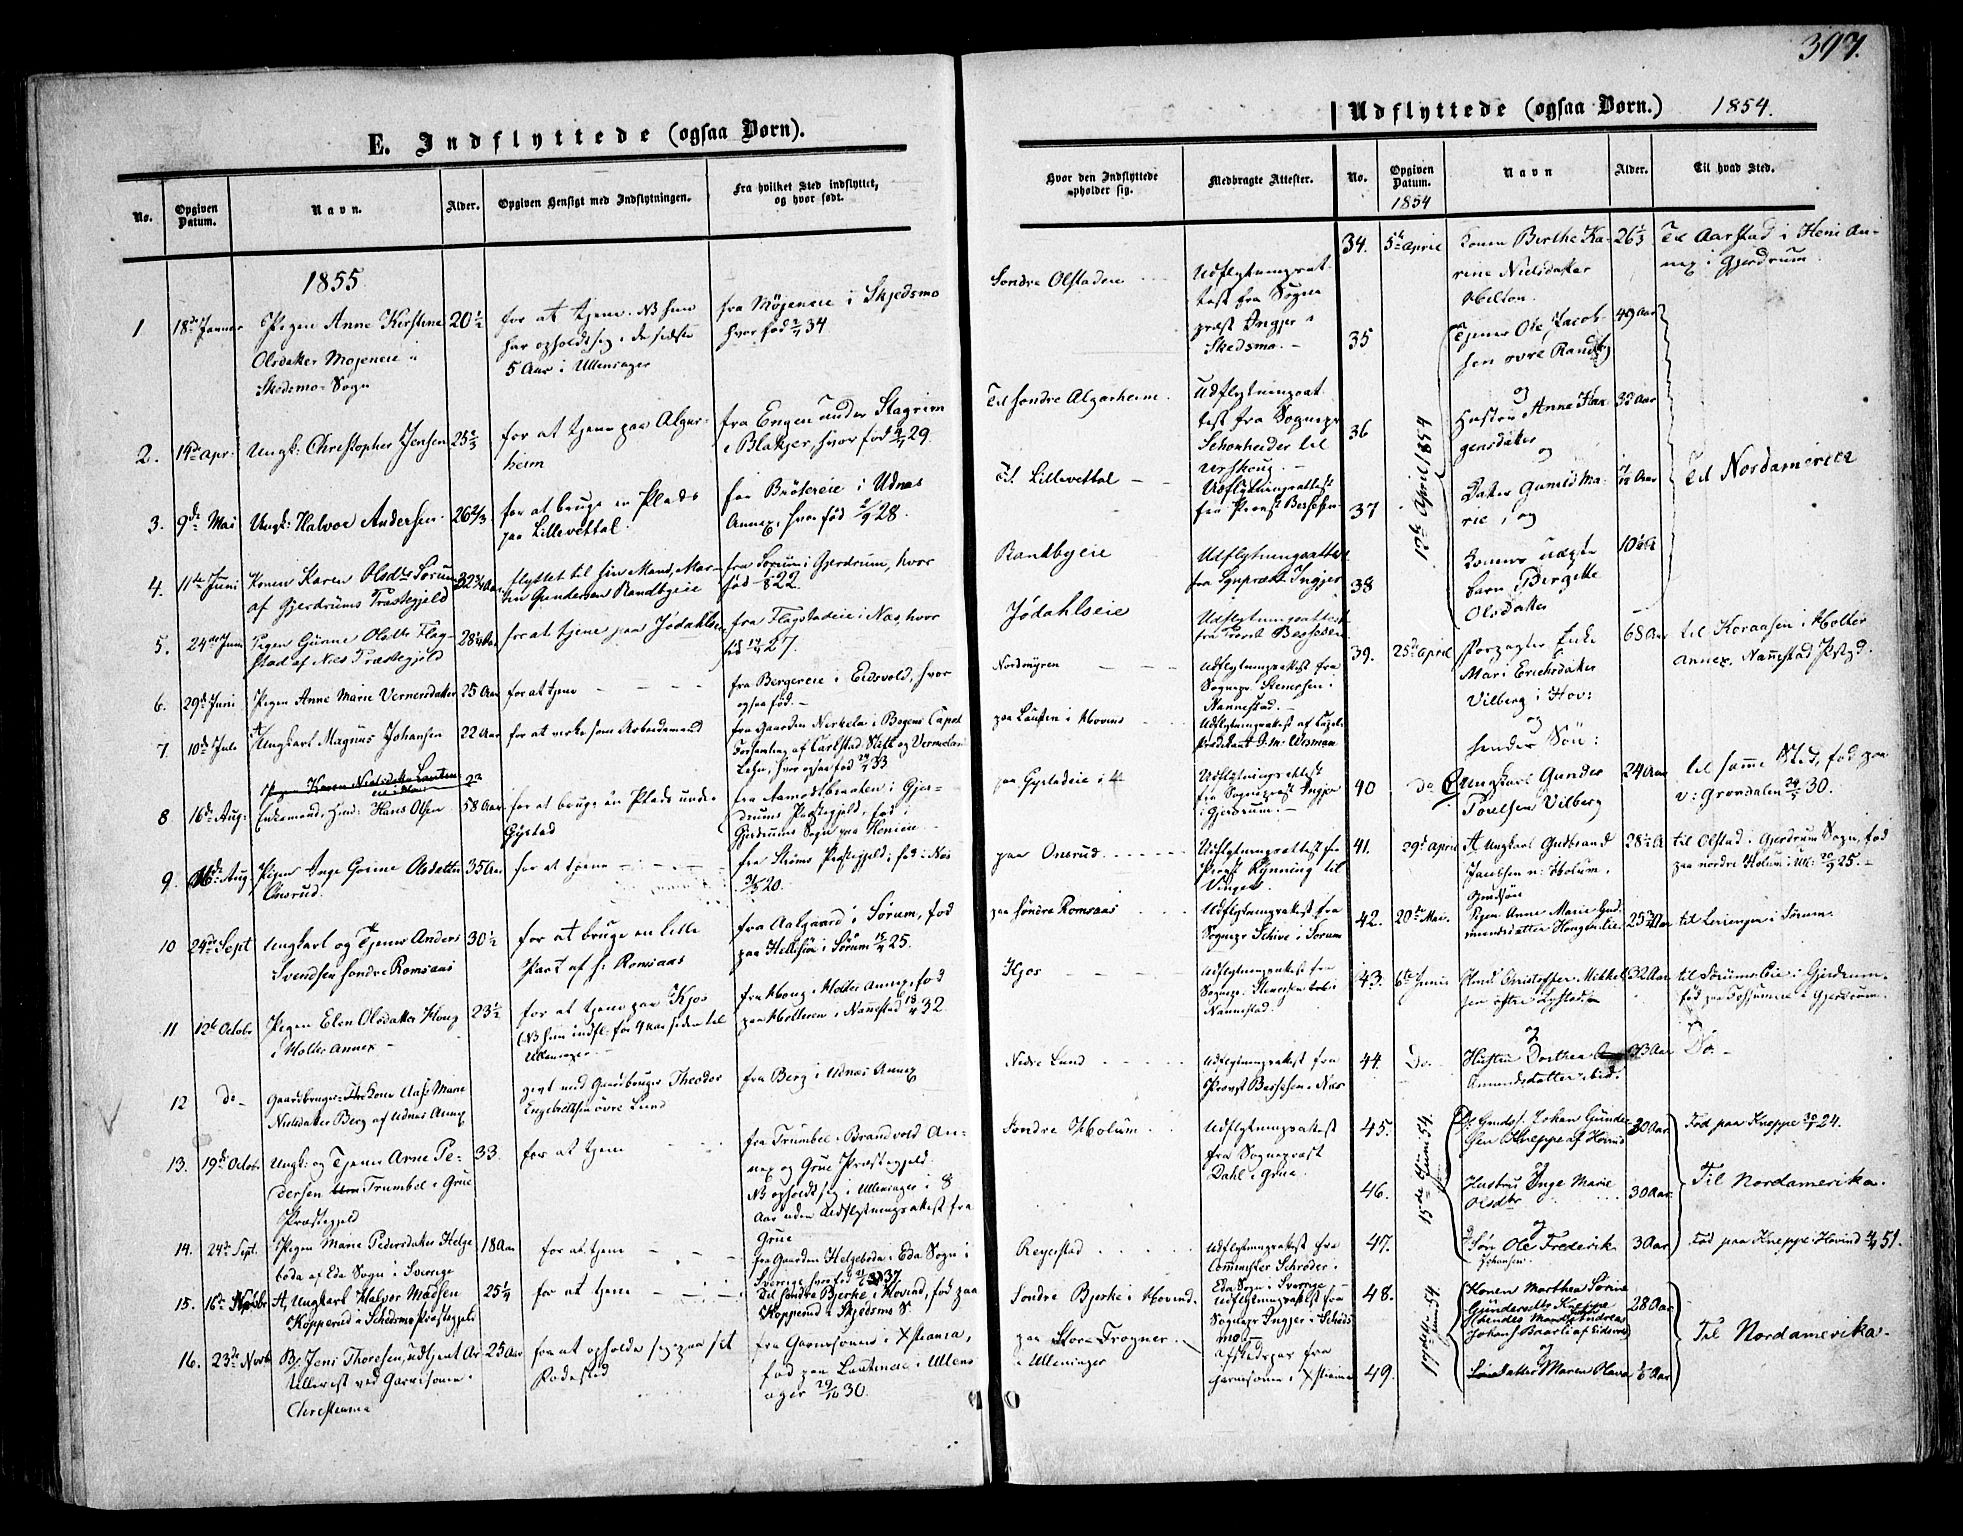 397.
E. Indflyttede (ogsaa Børn).
No.
Opgiven Datum.
Navn.
Alder.
Opgiven Hensigt med Indflytningen.
Fra hvilket Sted indflyttet, og hvor født.
Hvor den Indflyttede opholder sig.
Medbragte Attester.
1855
1
18de Januar
Pigen Anne Kirstine
Olsdatter Mojeneie i
Skedsmo Sogn
20 1/2
for at tjene. NB hun
har opholdt sig i de sidste
5 Aar i Ullensager
fra Mojeneie i Skjedsmo
hvor fød 34
Sondre Olstadeie
Udflytningsat
test fra Sogne
præst Ingjer i
Skedsmo. -
2.
14de Apr:
Ungk: Christopher Jensen
25 2/3
for at tjene paa Algar-
heim
fra Engen under
i Blakjer, hvor fød 29.
Til søndre Algarheim.
Udflytningsat
test fra Sognepr
Schonheider til
Urskoug. -
3.
9de Mai
Ungk: Halvor Andersen
26 2/3
for at bruge en Plads
paa Lillevettal.
fra Brötereie i Udnæs
Annex, hvor fød 28.
Til Lillevettal
Udflytningsattest
fra Provst Bessesen
4.
11te Juni
Konen Karen Olsdtr Sørum
af Gjerdrums Præstegjeld
32 3/4 Aar
flyttet til sin Mand, Mar-
tin Gundersen Randbyeie
fra Sørum i Gjerdrum, hvor
fød 22.
Randbyeie
Udflytningsattest
fra Sgnpræst Ingjer
5.
24de Juni
Pigen Gunne Olsdtr Flag-
stad af Næs Præstegjeld
for at tjene paa Jødahlseie
fra Flagstadeie i Næs hvor
fød 27.
Jødahlseie
Udflytningsattest
fra Provst Bessesen
6.
29de Juni
Pigen Anne Marie Vernersdatter
25 Aar
for at tjene
fra Bergereie i Eidsvold, hvor
ogsaa fød. -
Nordmyren
Udflytningsattest fra
Sognepr. Stenersen i
Nannestad. -
7
10de Juli
Ungkarl Magnus Johansen
22 Aar
for at virke som Arbeidsmand
fra Gaarden Nerkela i Bogens Capel
Forsamling af Carlstad Stift og Vermelands
Lehn, hvor ogsaa fød 33
paa Lauten i Hovins
Udflytningsattest af Capel
Prædikant Wisman
Pigen Karen Nielsdatter Lauten
8
16de Aug:
Enkemand, Huusm: Hans Olsen
58 Aar
for at bruge en Plads under
Gystad
fra Aamodtbraaten i Gjer-
drums Præstegjeld, fød i
Gjerdrums Sogn paa
paa Gystadeie
Udflytningsattest
fra Sognepræst Ingjer
i Gjerdrum. -
9.
Aug
Pigen Inge Gorine Olsdatter
Onsrud.
35 Aar
for at tjene
fra Strøms Præstegjeld; fød i Næs
20.
paa Onsrud.
Udflytningsattest fra
Provst Rynning til
Vinger.
10
24de Sept
Ungkarl og Tjener Anders
Svendsen søndre Romsaas
30 1/2
for at bruge en lille
Part af s: Romsaas
fra Aalgaard i Sørum, fød
paa Hellesiø i Sørum 25.
paa søndre Romsaas
Udflytningsattest fra
Sognepr Schive i Sørum
11
12te Octobr
Pigen Elen Olsdatter Houg
i Holter Annex -
23 1/2
for at tjene paa Kjos
(NB hun indfl: for 4 Aar siden til
Ullensager
fra Houg i Holter Annex, fød
paa Holteren i Nannestad 32
Kjos
Udflytningsattest fra
Sognepr. Stenersen
Nannestad.
12
do -
Gaardbruger Kone Aase Marie
Nielsdatter Berg af Udnæs Annex
givt med Gaardbruger Theodor
Engebretsen øvre Lund
fra Berg i Udnæs Annex
Nedre Lund
Udflytningsattest fra
Provst Bessesen i Næs
13.
19de Octbr.
Ungk: og Tjener Arne Pe-
dersen Trumbel i Grue
Præstegjeld
33.
for at tjene
fra Trumbel i Brandvold An-
nex og Grue Præstegjeld.
NB opholdt sig i Ullensager i 8
Aar uden Udflytningsattest fra
Grue
Søndre Holum
Udflytningsattest
fra Sognepræst
Dahl i Grue.
14.
24de Sept.
Pigen Marie Pedersdatter Helge
boda af Eda Sogn i Sverige
18 Aar
for at tjene
fra Gaarden Helgeboda i Eda Sogn i
Sverige, hvor fød 37
Reyestad
Udflytningsattest fra
Comminister Schröder i
Eda Sogn i Sverige. -
15.
16de Novbr
A, Ungkarl Halvor Madsen
Kopperud i Schedsmo Præstegjeld
25 1/4
for at tjene
Til søndre Bjerke i Hovind, fød paa
Kopperud i Skjedsmo S
Søndre Bjerke i Hovind.
Udflytningsattest fra
Sognepr Ingjer i Skeds
mo
16.
23de Novbr
B, Jens Thoresen, udtjent Ar
tillerist ved Garnisonen i
Christiania
25 Aar
for at opholde sig paa sit
Fødested
fra Garnisonen i Xstiania,
fød paa Lauteneie i Ullens
ager 29/10 30.
paa Store Frogner
i Ullensager
Afskedspas fra
Garnisonen i Xstiania
Udflyttede (ogsaa Børn.) 1854.
No.
Opgiven Datum.
1854
Navn
Alder.
Til hvad Sted.
34.
5te April
Konen Berthe Ka-
rine Nielsdatter
Holton.
26 1/3
Til Aarstad i Heni An-
nex i Gjerdrum
35
12te April 1854
Tjener Ole Jacob-
sen øvre Randby
49 Aar
og
36
Hustru Anne Jør
gensdatter
og
32 Aar
Til Nordamerica
37
Datter Gunild Ma-
rie, og
38
Konens uægte
barn Bergitte
Olsdatter
39.
25de April
Forpagter Enke
Mari Erichsdatter
Vilberg i Hov:
68 Aar
til Koraasen i Holter
Annex, Nannestad Pstgd.
og
hendes Søn:
40
do
Ungkarl Gunder
Poulsen Vilberg
24 Aar
til samme Sted, fød paa
v: Grøndalen 30.
41.
29de April
A, Ungkarl Gudbrand
Jacobsen n: Holum.
til Olstad i Gjerdrum Sogn, fød
paa nordre Holum i Ull: 25.-
42.
20de Mai
Pigen Anne Marie Gud
mundsdatter
til i Sørum.
43.
6te Junii
Christoffer Mikkel
sen
32 Aar
til Sørums Eie i Gjerdrum.
fød paa i Gjerdrum.
og
44.
Do.
Hustru Dorthea
Amundsdatter ibid.
33 Aar
Do. -
45.
15de Juni 54.
Johan Gunder
sen Kneppe af Hovind
30 Aar
Fød paa Kneppe 24.
og
46.
Hustru Inge Marie
Olsdtr
30 Aar.
Til Nordamerika.
og
47.
Søn Ole Frederik
Johansen.
3 Aar
Fød paa Kneppe i Hovind 51.
48.
17de Juni 54.
Konen Marthea Sørine
Gundersdtr Kneppe
hendes Mand Andreas
Johans: Braarli af Eidsvold
28 Aar
Til Nordamerika.
og
49.
Datter Maren Olava